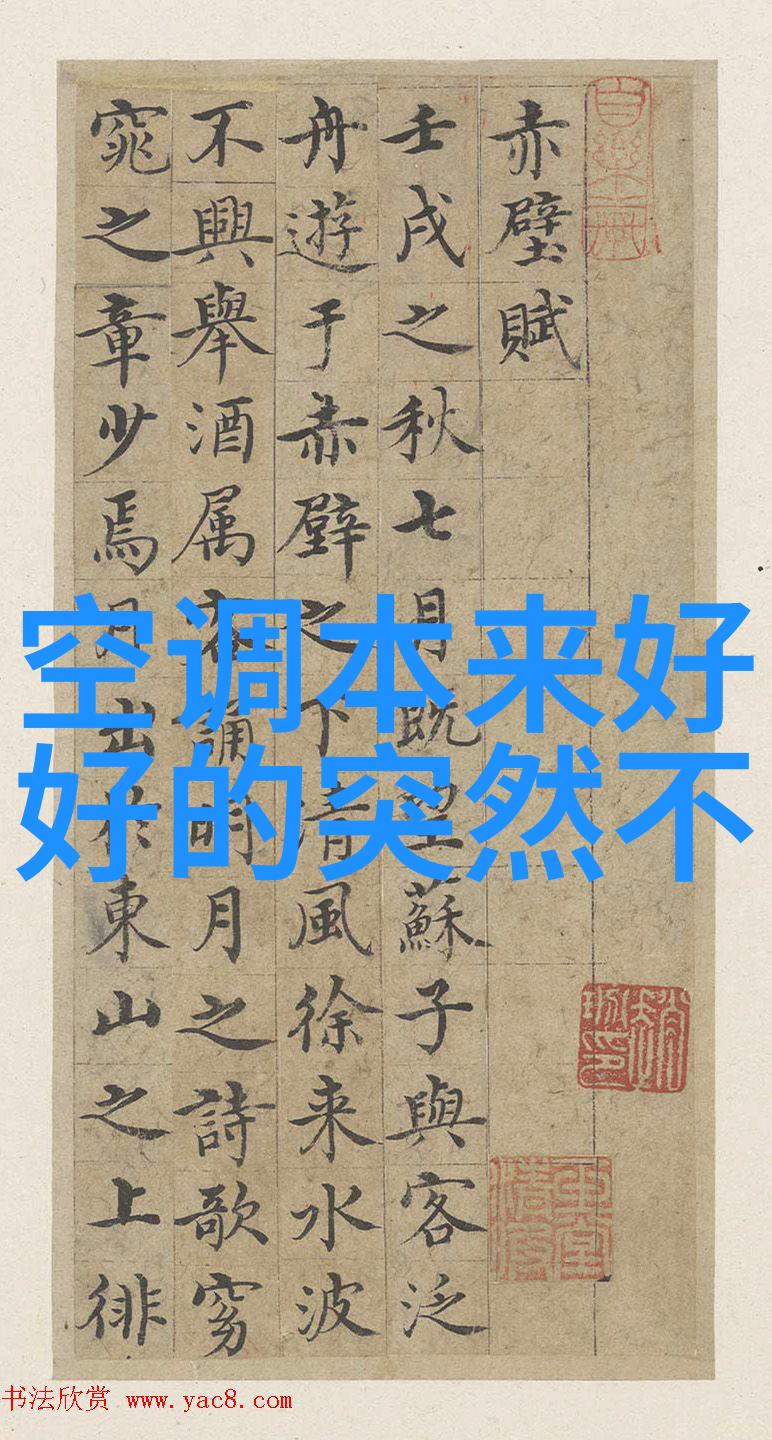 赤壁賦
壬戌之秋七月既望蘇子與客泛
舟遊于赤壁之下清風徐来水波
不興舉酒属客誦明月之詩歌窈
窕之章少焉月出於東山之上徘
空调本来好
好的突然不
书法欣赏 www.yac8.com